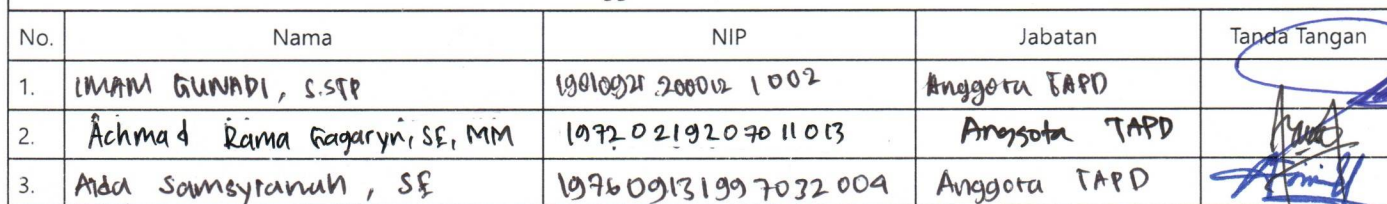 No. Nama NIP Jabatan Tanda Tangan
1. IMAM GUNADI, S.STP 19810921 200012 1002 Anggota TAPD
2. Achmad Rama Gagaryn, SE, MM 19720219207011013 Anggota TAPD
3. Aida Samsyranah, SE 197609131997032004 Anggota TAPD